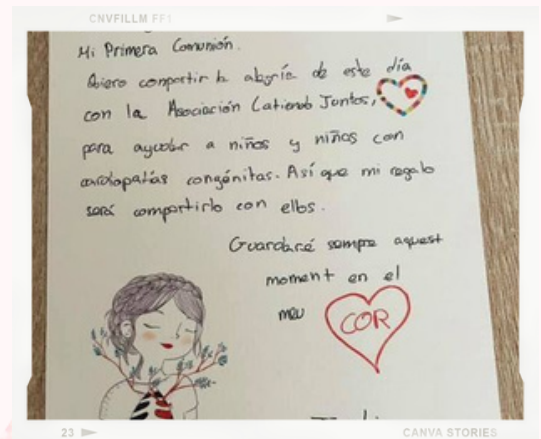 CNVFILLM FF1
Mi Primera Comunión.
Quiero compartir la alegría de este día
con la Asociación Latiendo Juntos,
para ayudar a niños y niñas con
cardiopatías congénitas. Así que mi regalo
será compartirlo con ellos.
Guardaré sempre aquest
moment en el
meu
COR
23
CANVA STORIES